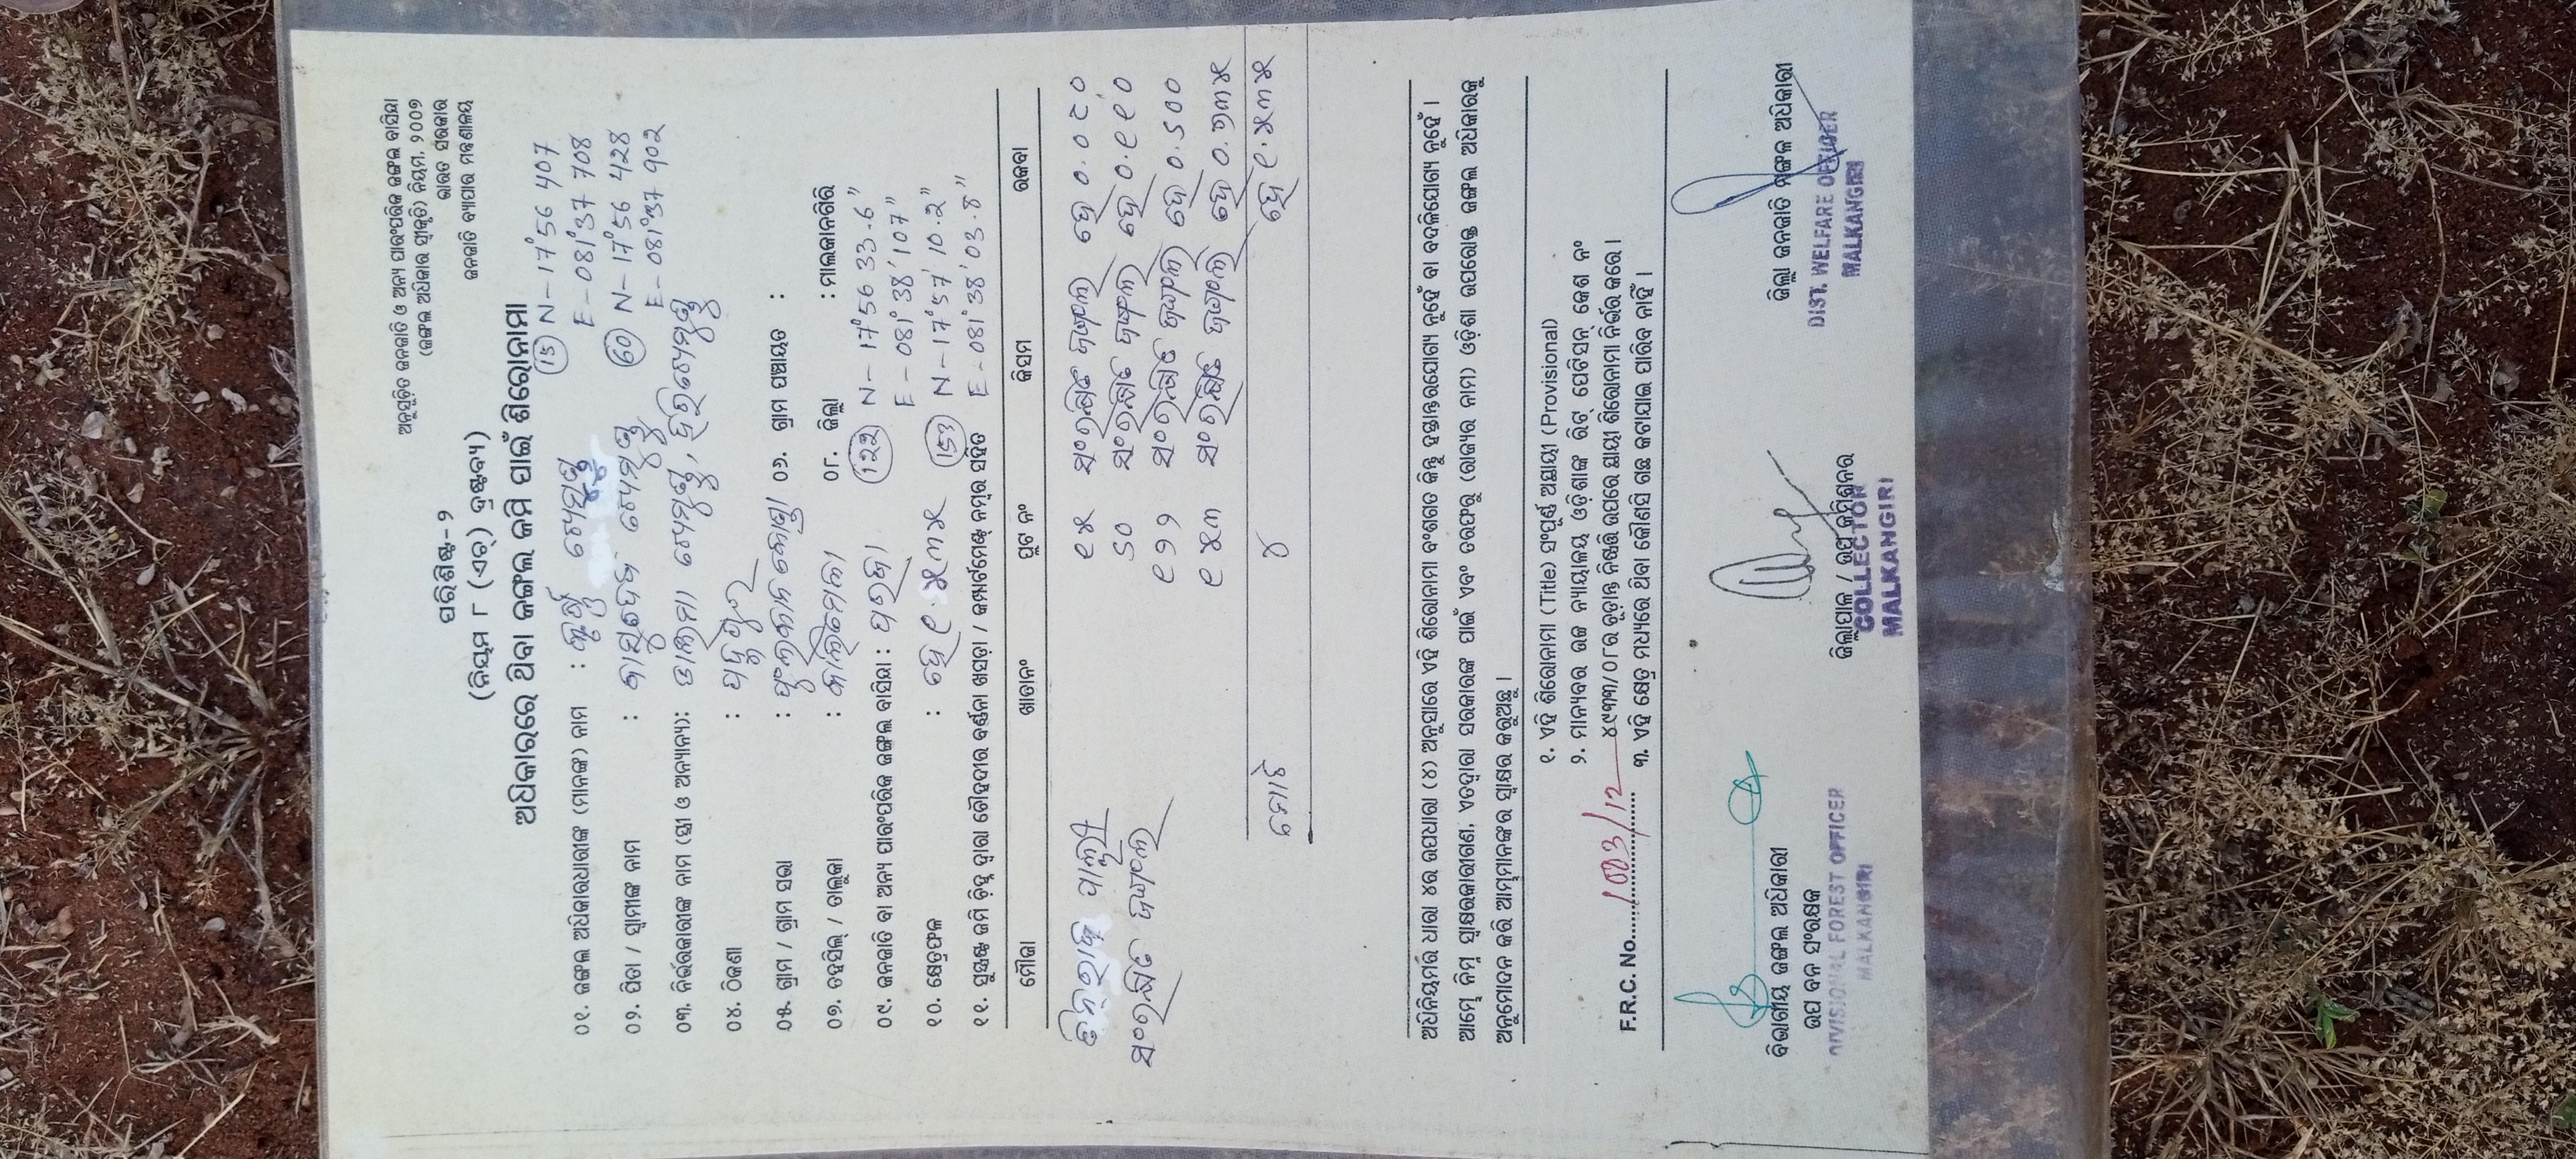 ଅନୁସୂଚିତ ଜନଜାତି ଓ ଅନ୍ୟ ପାରଂପରିକ ଜଙ୍ଗଲ ବାସିନ୍ଦା
(ଜଙ୍ଗଲ ଅଧିକାର ସ୍ୱୀକୃତି) ନିୟମ, ୨୦୦୭
ଭାରତ ସରକାର
ଜନଜାତି ବ୍ୟାପାର ମନ୍ତ୍ରଣାଳୟ
ପରିଶିଷ୍ଟ-୨
(ନିୟମ ୮ (ଏଚ୍) ଦ୍ରଷ୍ଟବ୍ୟ)
ଅଧିକାରରେ ଥିବା ଜଙ୍ଗଲ ଜମି ପାଇଁ ଶିରୋନାମା
(15) N-17°56 407
E-081°37 708
(60) N-17°56 428
E-081°37 902
୦୧. ଜଙ୍ଗଲ ଅଧିକାରଧାରୀଙ୍କ (ମାନଙ୍କ) ନାମ :
୦୨. ପିତା / ସ୍ୱାମୀଙ୍କ ନାମ :
୦୩. ନିର୍ଭରକାରୀଙ୍କ ନାମ (ସ୍ତ୍ରୀ ଓ ଅନ୍ୟାନ୍ୟ):
୦୪. ଠିକଣା :
୦୫. ଗ୍ରାମ / ଗ୍ରାମ ସଭା : ୦୬. ଗ୍ରାମ ପଞ୍ଚାୟତ :
୦୭. ତହସିଲ୍ / ତାଲୁକା : ୦୮. ଜିଲ୍ଲା : ମାଲକାନଗିରି
୦୯. ଜନଜାତି ବା ଅନ୍ୟ ପାରଂପରିକ ଜଙ୍ଗଲ ବାସିନ୍ଦା : (122) N-17°56 33.6"
E-081°38'107"
୧୦. କ୍ଷେତ୍ରଫଳ : ହେ ୧.୫୩୫ (153) N-17°57'10.2"
E-081°38'03.8"
୧୧. ସୁସ୍ପଷ୍ଟ ଜମି ଚିହ୍ନ ଦ୍ୱାରା ଚୌହଦୀର ବର୍ଣ୍ଣନା ଖସଡ଼ା / କମ୍ପାର୍ଟମେଣ୍ଟ ନମ୍ବର ସହିତ
ମୌଜା ଖାତାନଂ ପ୍ଲଟ ନଂ କିସମ ରକବା
୧୫ ସଂରକ୍ଷିତ ଜଙ୍ଗଲ ହେ ୦.୦୮୦
ସଂରକ୍ଷିତ ଜଙ୍ଗଲ ୬୦ ସଂରକ୍ଷିତ ଜଙ୍ଗଲ ହେ ୦.୧୧୦
୧୨୨ ସଂରକ୍ଷିତ ଜଙ୍ଗଲ ହେ ୦.୬୦୦
୧୫୩ ସଂରକ୍ଷିତ ଜଙ୍ଗଲ ହେ ୦.୭୩୫
ମୋଟ ୪ ହେ ୧.୫୩୫
ଅଧିନିୟମର ଧାରା ୪ର ଉପଧାରା (୪) ଅନୁସାରେ ଏହି ଶିରୋନାମା ବଂଶଗତ କିନ୍ତୁ ହସ୍ତାନ୍ତରଯୋଗ୍ୟ ନୁହେଁ ବା ବଦଳିଯୋଗ୍ୟ ନୁହେଁ ।
ଆମ୍ଭେ ନିମ୍ନ ସ୍ୱାକ୍ଷରକାରୀଗଣ, ଏତଦ୍ୱାରା ସରକାରଙ୍କ ପାଇଁ ଏବଂ ତରଫରୁ (ରାଜ୍ୟର ନାମ) ଓଡ଼ିଶା ଉପରୋକ୍ତ ଜଙ୍ଗଲ ଅଧିକାରକୁ
ଅନୁମୋଦନ କରି ଆମ୍ଭମାନଙ୍କର ସ୍ୱାକ୍ଷର କରୁଅଛୁ ।
୧. ଏହି ଶିରୋନାମା (Title) ସଂପୂର୍ଣ୍ଣ ଅସ୍ଥାୟୀ (Provisional)
୨. ମାନ୍ୟବର ଉଚ୍ଚ ନ୍ୟାୟାଳୟ ଓଡ଼ିଶାଙ୍କ ରିଟ୍ ପେଟିସନ୍ କେଶ ନଂ
୪୯୩୩/୦୮ର ଚୂଡ଼ାନ୍ତ ନିଷ୍ପତ୍ତି ଉପରେ ସ୍ଥାୟୀ ଶିରୋନାମା ନିର୍ଭର କରେ ।
F.R.C. No. 1003/12 ୩. ଏହି କ୍ଷେତ୍ର ମଧ୍ୟରେ ଥିବା କୌଣସି ଗଛ କଟାଯାଇ ପାରିବ ନାହିଁ ।
ବିଭାଗୀୟ ଜଙ୍ଗଲ ଅଧିକାରୀ
ଉପ ବନ ସଂରକ୍ଷକ
DIVISIONAL FOREST OFFICER
MALKANGIRI
ଜିଲ୍ଲାପାଳ / ଉପ କମିଶନର
COLLECTOR
MALKANGIRI
ଜିଲ୍ଲା ଜନଜାତି ମଙ୍ଗଳ ଅଧିକାରୀ
DIST. WELFARE OFFICER
MALKANGIRI